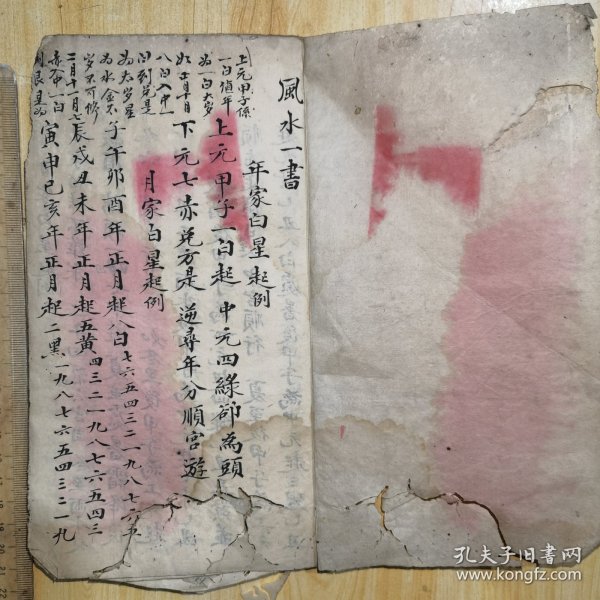 風水一書
年家白星起例
上元甲子一白起 中元四綠卻為頭
下元七赤兌方是 逆尋年分順宮遊
月家白星起例
子午卯酉年正月起八白七六五四三二一九八七六五
辰戌丑未年正月起五黃四三二一九八七六五四三
寅申巳亥年正月起二黑一九八七六五四三二一九
上元甲子係
一白值年
為一白太岁
八白入中一
白到兌是
為太岁星
為水金不
岁不可修
二月十一月七
赤入中一白
到艮是為
孔夫子旧书网
www.kongfz.com